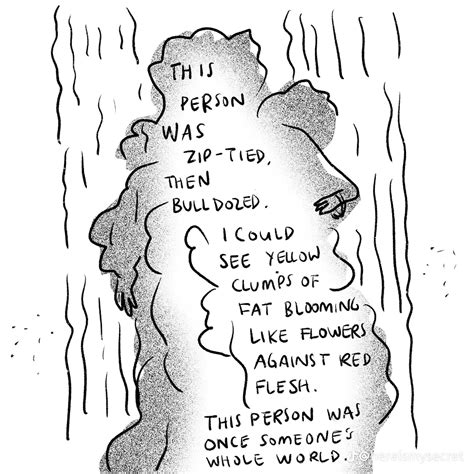 THIS
PERSON
WAS
ZIP-TIED,
THEN
BULLDOZED.
I COULD
SEE YELLOW
CLUMPS OF
FAT BLOOMING
LIKE FLOWERS
AGAINST RED
FLESH.
THIS PERSON WAS
ONCE SOMEONE'S
WHOLE WORLD.